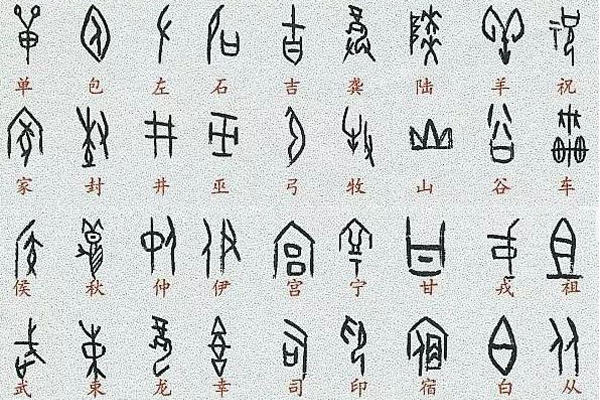 单 包 左 石 吉 龚 陆 羊 祝
家 封 井 巫 弓 牧 山 谷 车
侯 秋 仲 伊 宫 宁 甘 戎 祖
武 束 龙 幸 司 印 宿 白 从